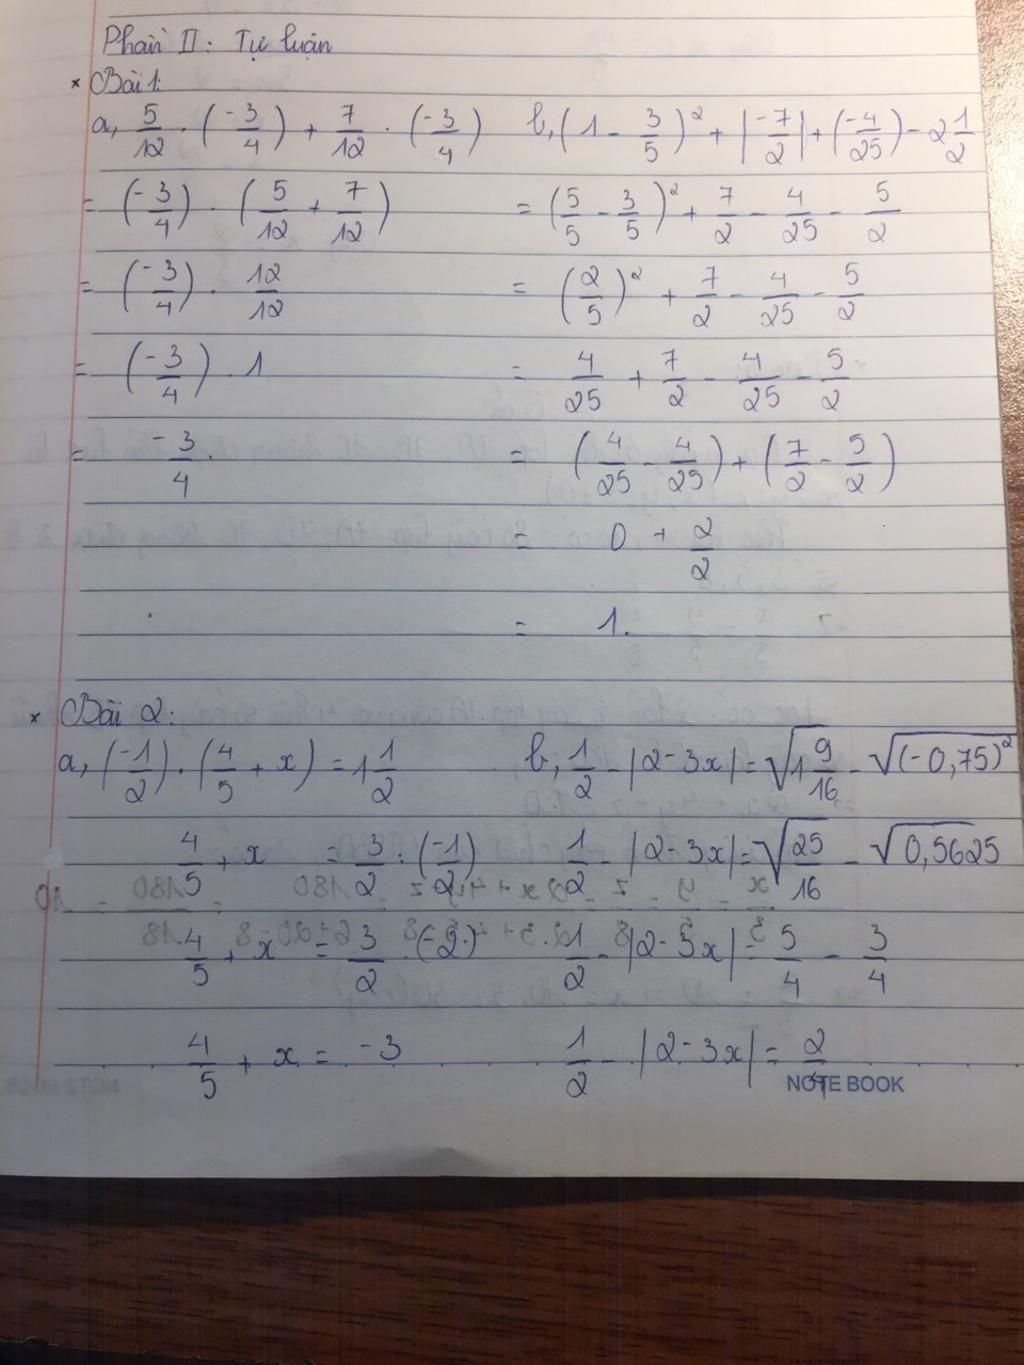 Phần II: Tự luận
* Bài 1:
a, 5/12 . (-3/4) + 7/12 . (-3/4)
= (-3/4) . (5/12 + 7/12)
= (-3/4) . 12/12
= (-3/4) . 1
= -3/4.
b, (1 - 3/5)² + |-7/2| + (-4/25) - 2 1/2
= (5/5 - 3/5)² + 7/2 - 4/25 - 5/2
= (2/5)² + 7/2 - 4/25 - 5/2
= 4/25 + 7/2 - 4/25 - 5/2
= (4/25 - 4/25) + (7/2 - 5/2)
= 0 + 2/2
= 1.
* Bài 2:
a, (-1/2) . (4/5 + x) = 1 1/2
4/5 + x = 3/2 : (-1/2)
4/5 + x = 3/2 . (-2)
4/5 + x = -3
b, 1/2 - |2-3x| = √(1 9/16) - √((-0,75)²)
1/2 - |2-3x| = √(25/16) - √(0,5625)
1/2 - |2-3x| = 5/4 - 3/4
1/2 - |2-3x| = 2/4
NOTE BOOK